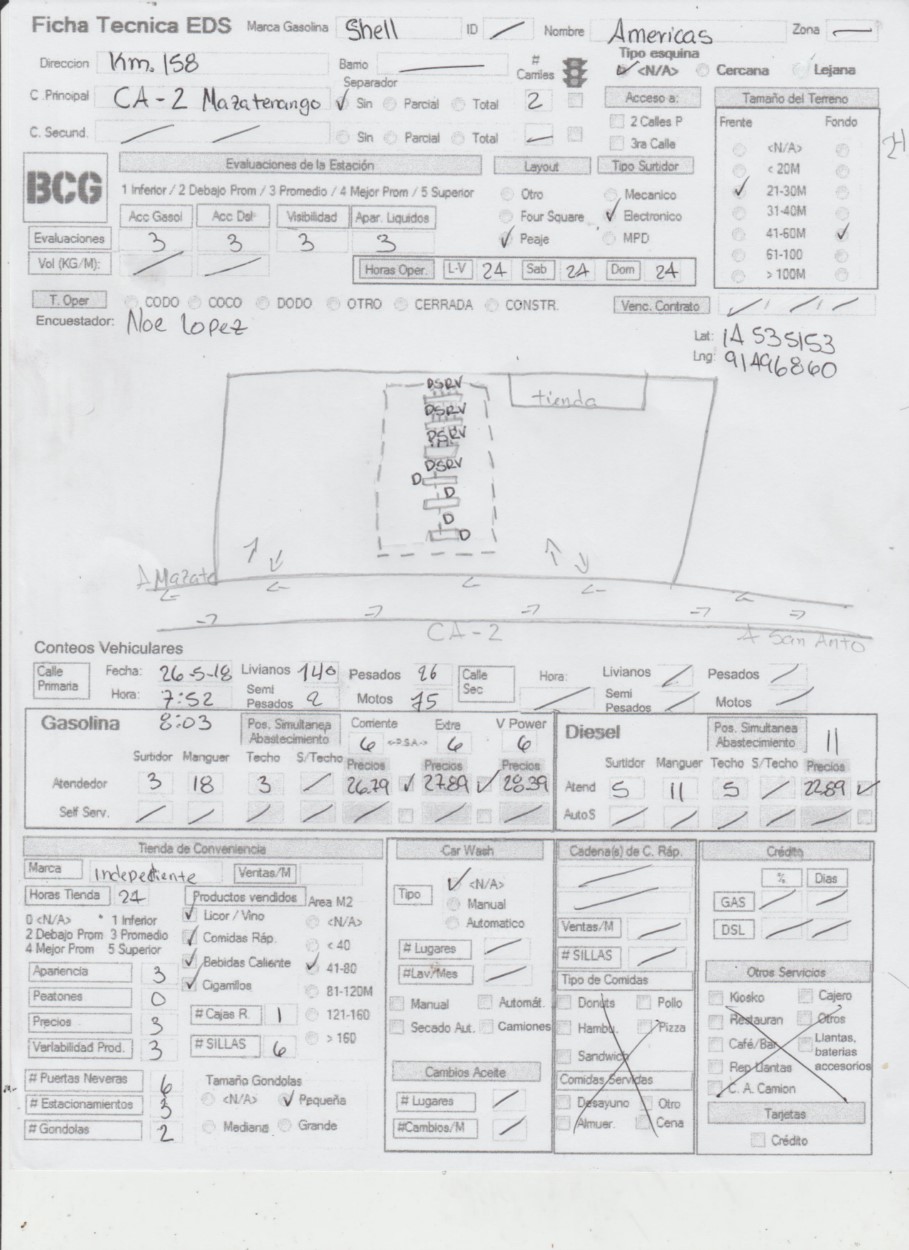 Ficha Tecnica EDS Marca Gasolina Shell ID / Nombre Americas Zona —
Direccion Km. 158 Barrio — # Carriles Tipo esquina <N/A> Cercana Lejana
C .Principal CA-2 Mazatenango Separador ✓ Sin Parcial Total 2 Acceso a: Tamaño del Terreno
C. Secund. / / Sin Parcial Total — 2 Calles P 3ra Calle Frente Fondo
BCG Evaluaciones de la Estación Layout Tipo Surtidor <N/A>
1 Inferior / 2 Debajo Prom / 3 Promedio / 4 Mejor Prom / 5 Superior Otro Mecanico < 20M
Acc Gasol Acc Dsl Visibilidad Apar. Liquidos Four Square ✓ Electronico ✓ 21-30M
31-40M
Evaluaciones 3 3 3 3 ✓ Peaje MPD 41-60M ✓
Vol (KG/M): / / Horas Oper. L-V 24 Sab 24 Dom 24 61-100
> 100M
T. Oper CODO COCO DODO OTRO CERRADA CONSTR. Venc. Contrato / / /
Encuestador: Noe Lopez
Lat: 14 535153
Lng: 91496860
DSRV
tienda
DSRV
DSRV
DSRV
D
D
D
D
A Mazate
CA-2
A San Anto
Conteos Vehiculares
Calle Primaria Fecha: 26-5-18 Livianos 140 Pesados 26 Calle Sec Hora: / Livianos / Pesados /
Hora: 7:52 Semi Pesados 2 Motos 75 Semi Pesados / Motos /
Gasolina 8:03 Pos. Simultanea Abastecimiento Corriente 6 <-D.S.A-> Extra 6 V Power 6 Diesel Pos. Simultanea Abastecimiento 11
Surtidor Manguer Techo S/Techo Precios Precios Precios Surtidor Manguer Techo S/Techo Precios
Atendedor 3 18 3 / 26.79 ✓ 27.89 ✓ 28.39 Atend 5 11 5 / 22.89 ✓
Self Serv. / / / / / / / AutoS / / / / /
Tienda de Conveniencia Car Wash Cadena(s) de C. Ráp. Crédito
Marca Independiente Ventas/M ✓ <N/A> % Dias
Horas Tienda 24 Productos vendidos Area M2 Tipo Manual GAS / /
0 <N/A> * 1 Inferior ✓ Licor / Vino <N/A> Automatico Ventas/M / DSL / /
2 Debajo Prom 3 Promedio ✓ Comidas Ráp. < 40 # Lugares / # SILLAS /
4 Mejor Prom 5 Superior ✓ Bebidas Caliente ✓ 41-80 #Lav/Mes / Tipo de Comidas Otros Servicios
Apariencia 3 ✓ Cigarrillos 81-120M Manual Automát. Donuts Pollo Kiosko Cajero
Peatones 0 # Cajas R. 1 121-160 Secado Aut. Camiones Hambu. Pizza Restauran Otros
Precios 3 # SILLAS 6 > 160 Sandwich Café/Bar Llantas, baterias accesorios
Variabilidad Prod. 3 Cambios Aceite Comidas Servidas Rep Llantas
# Puertas Neveras 6 Tamaño Gondolas # Lugares / Desayuno Otro C. A. Camion
# Estacionamientos 3 <N/A> ✓ Pequeña #Cambios/M / Almuer. Cena Tarjetas
# Gondolas 2 Mediana Grande Crédito